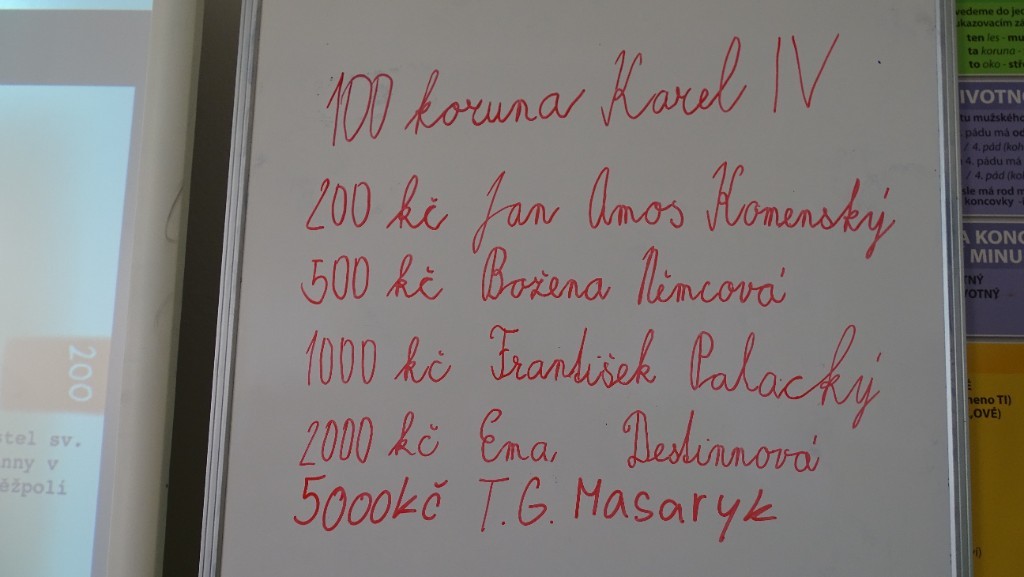 100 koruna Karel IV
200 kč Jan Amos Komenský
500 kč Božena Němcová
1000 kč František Palacký
2000 kč Ema Destinnová
5000kč T.G. Masaryk
200
stel sv.
nny v
ěžpoli
vedeme do jed
ukazovacím zá
ten les - mu
ta koruna -
to oko - stř
IVOTNO
tu mužského
pádu má od
/ 4. pád (koh
4. pádu má
/ 4. pád (ko
sle má rod m
koncovky -
A KONC
MINU
TNÝ
VOTNÝ
É
meno TI)
,OVÉ)